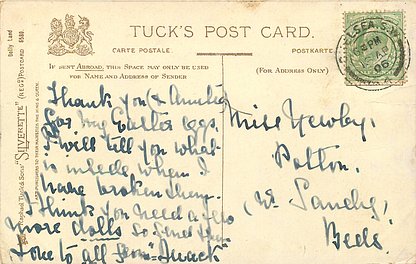 TUCK'S POST CARD.
CARTE POSTALE.
POSTKARTE
IF SENT ABROAD, THIS SPACE MAY ONLY BE USED
FOR NAME AND ADDRESS OF SENDER
(FOR ADDRESS ONLY)
Raphael Tuck & Sons' "SILVERETTE" (REGD) POSTCARD
Thank you (& Auntie)
for my Easter eggs.
I will tell you what
is inside when I
have broken them.
I think you need a few
more dolls so send you
love to all from "Quack"
Miss Newby.
Potton.
Nr. Sandy.
Beds.
CHELSEA S.W.
PM
AP
06